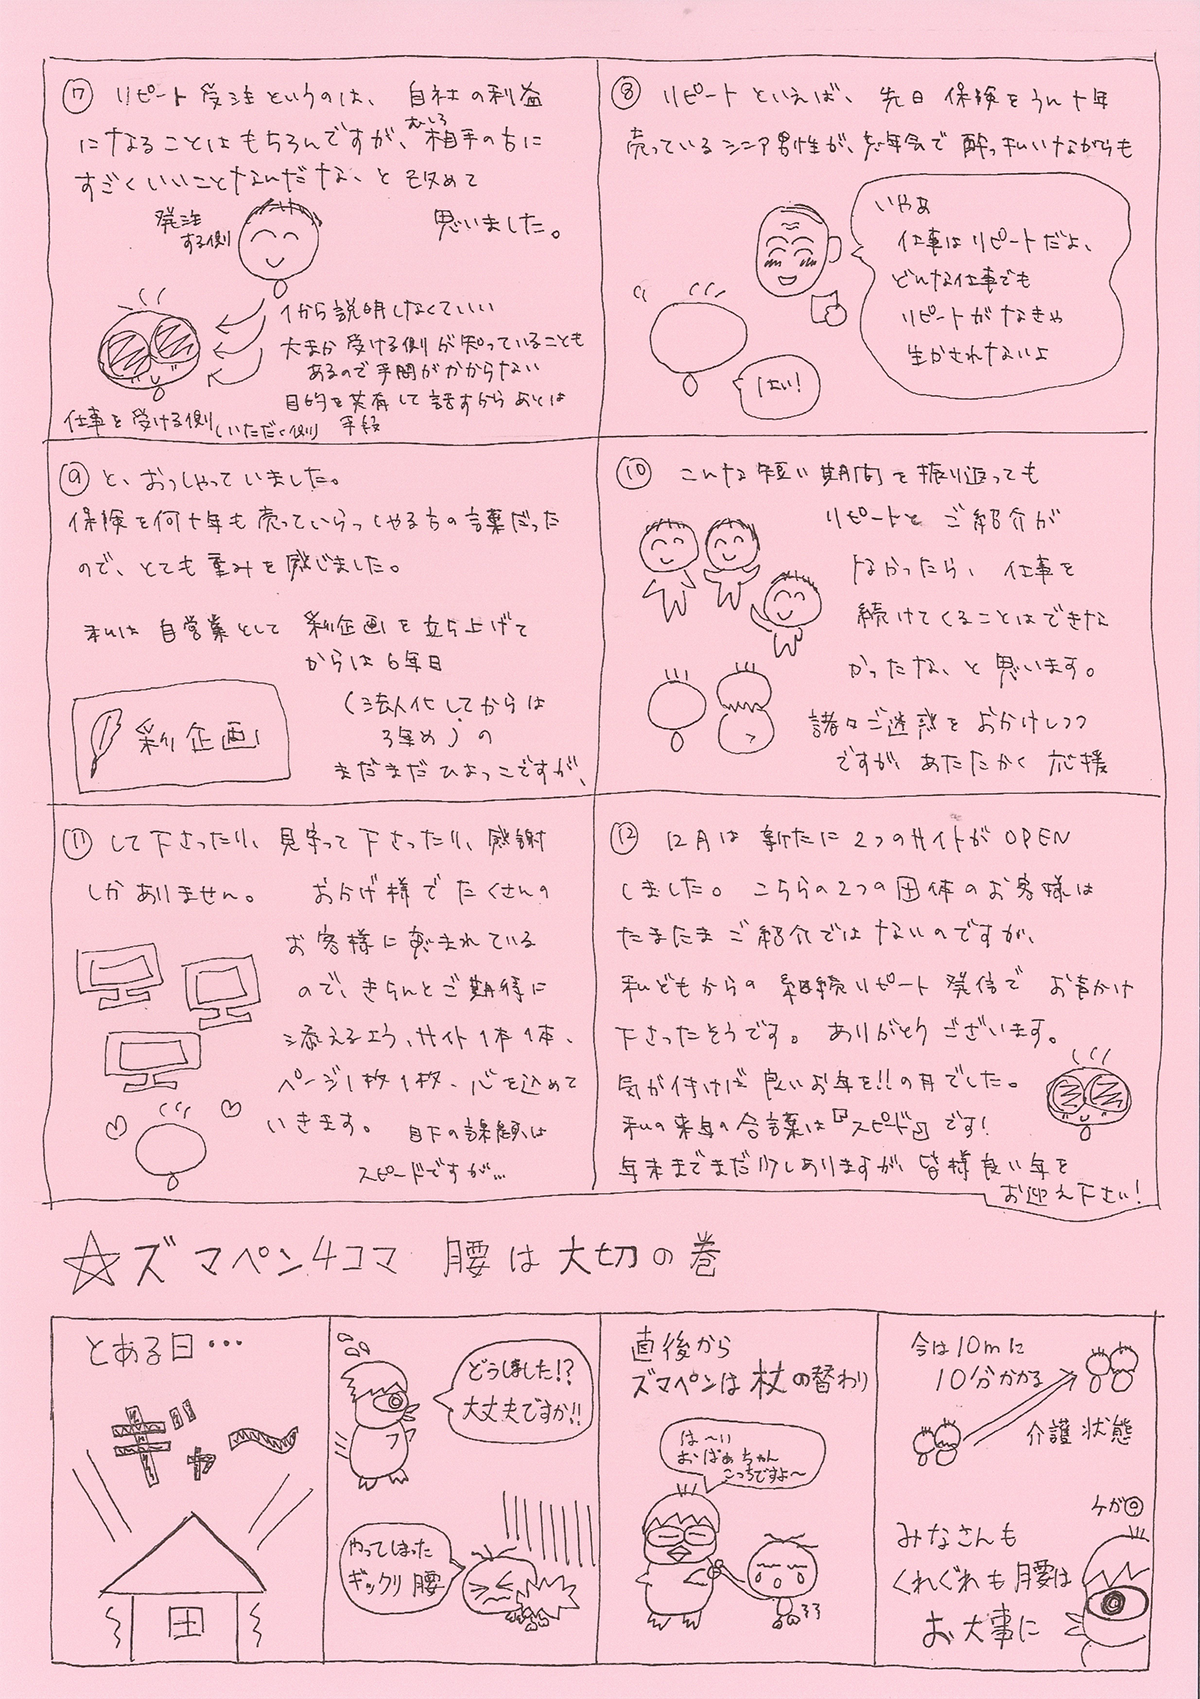 ⑦ リピート受注というのは、自社の利益
になることはもちろんですが、むしろ相手の方に
すごくいいことなんだな、と改めて
思いました。
発注
する側
1から説明しなくていい
大まか受ける側が知っていることも
あるので手間がかからない
目的を共有して話すからあとは
手段
仕事を受ける側(いただく側)
⑧ リピートといえば、先日保険をうん十年
売っているシニア男性が、忘年会で酔っ払いながらも
いやぁ
仕事はリピートだよ、
どんな仕事でも
リピートがなきゃ
生かされないよ
はい!
⑨ と、おっしゃっていました。
保険を何十年も売っていらっしゃる方の言葉だった
ので、とても重みを感じました。
私は自営業として 彩企画を立ち上げて
からは6年目
(法人化してからは
3年め)の
まだまだひよっこですが、
彩企画
⑩ こんな短い期間を振り返っても
リピートとご紹介が
なかったら、仕事を
続けてくることはできな
かったな、と思います。
諸々ご迷惑をおかけしつつ
ですが、あたたかく応援
⑪ して下さったり、見守って下さったり、感謝
しかありません。 おかげ様でたくさんの
お客様に恵まれている
ので、きちんとご期待に
添えるよう、サイト1本1本、
ページ1枚1枚、心を込めて
いきます。 目下の課題は
スピードですが…
⑫ 12月は新たに2つのサイトがOPEN
しました。こちらの2つの団体のお客様は
たまたまご紹介ではないのですが、
私どもからの継続リピート発信でお声かけ
下さったそうです。ありがとうございます。
気が付けば良いお年を!!の月でした。
私の来年の合言葉は『スピード』です!
年末までまだ少しありますが、皆様良い年を
お迎え下さい!
☆ズマペン4コマ 腰は大切の巻
とある日…
ギャ〜
どうしました!?
大丈夫ですか!!
やってしまった
ギックリ腰
直後から
ズマペンは杖の替わり
は〜い
おばあちゃん
こっちですよ〜
今は10mに
10分かかる
介護状態
ケガ◎
みなさんも
くれぐれも腰は
お大事に